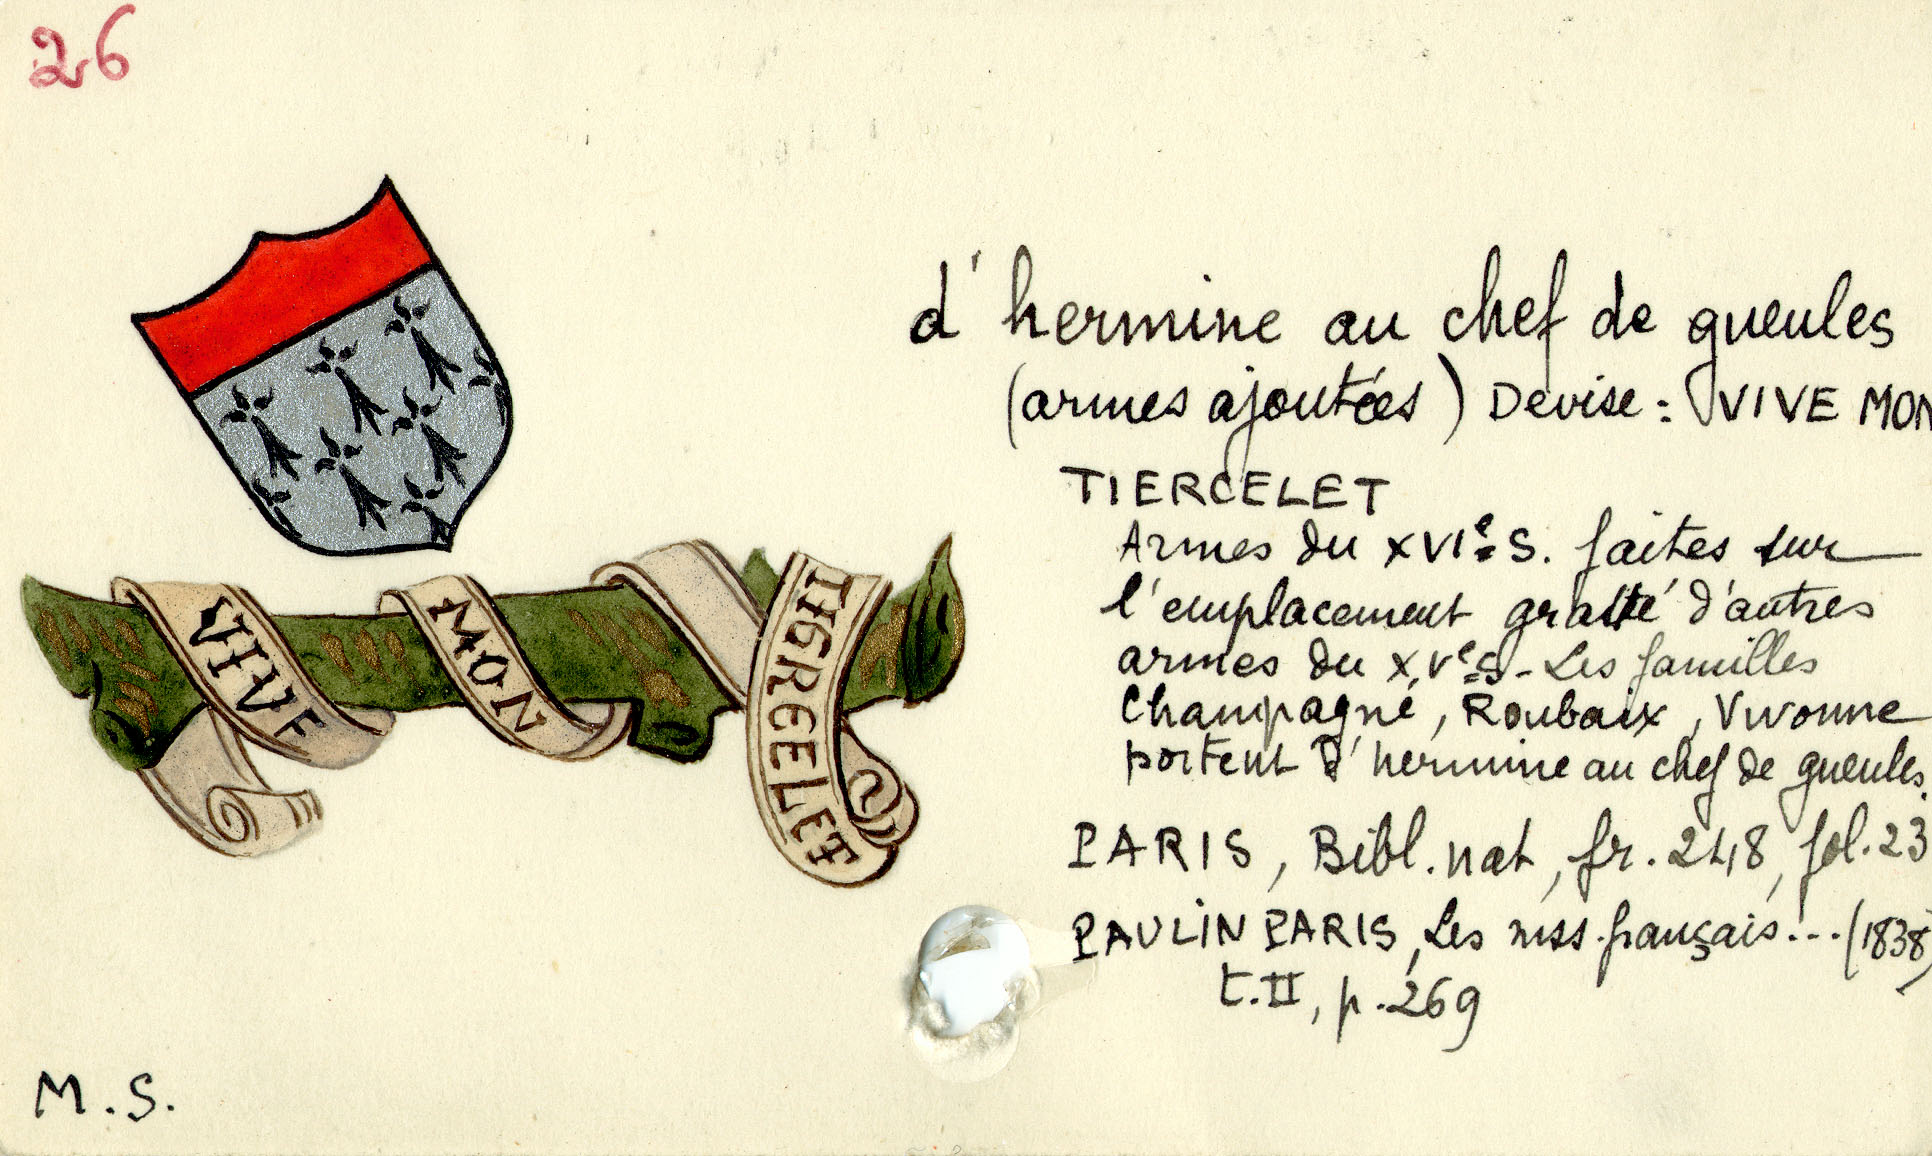 26
VIVE
MON
TIERCELET
d'hermine au chef de gueules
(armes ajoutées) Devise : VIVE MON
TIERCELET
Armes du XVIe S. faites sur
l'emplacement gratté d'autres
armes du XVe S - Les familles
Champagné, Roubaix, Vivonne
portent d'hermine au chef de gueules.
PARIS, Bibl. nat, fr. 248, fol. 23
PAULIN PARIS, Les mss. français... (1838)
t. II, p. 269
M. S.